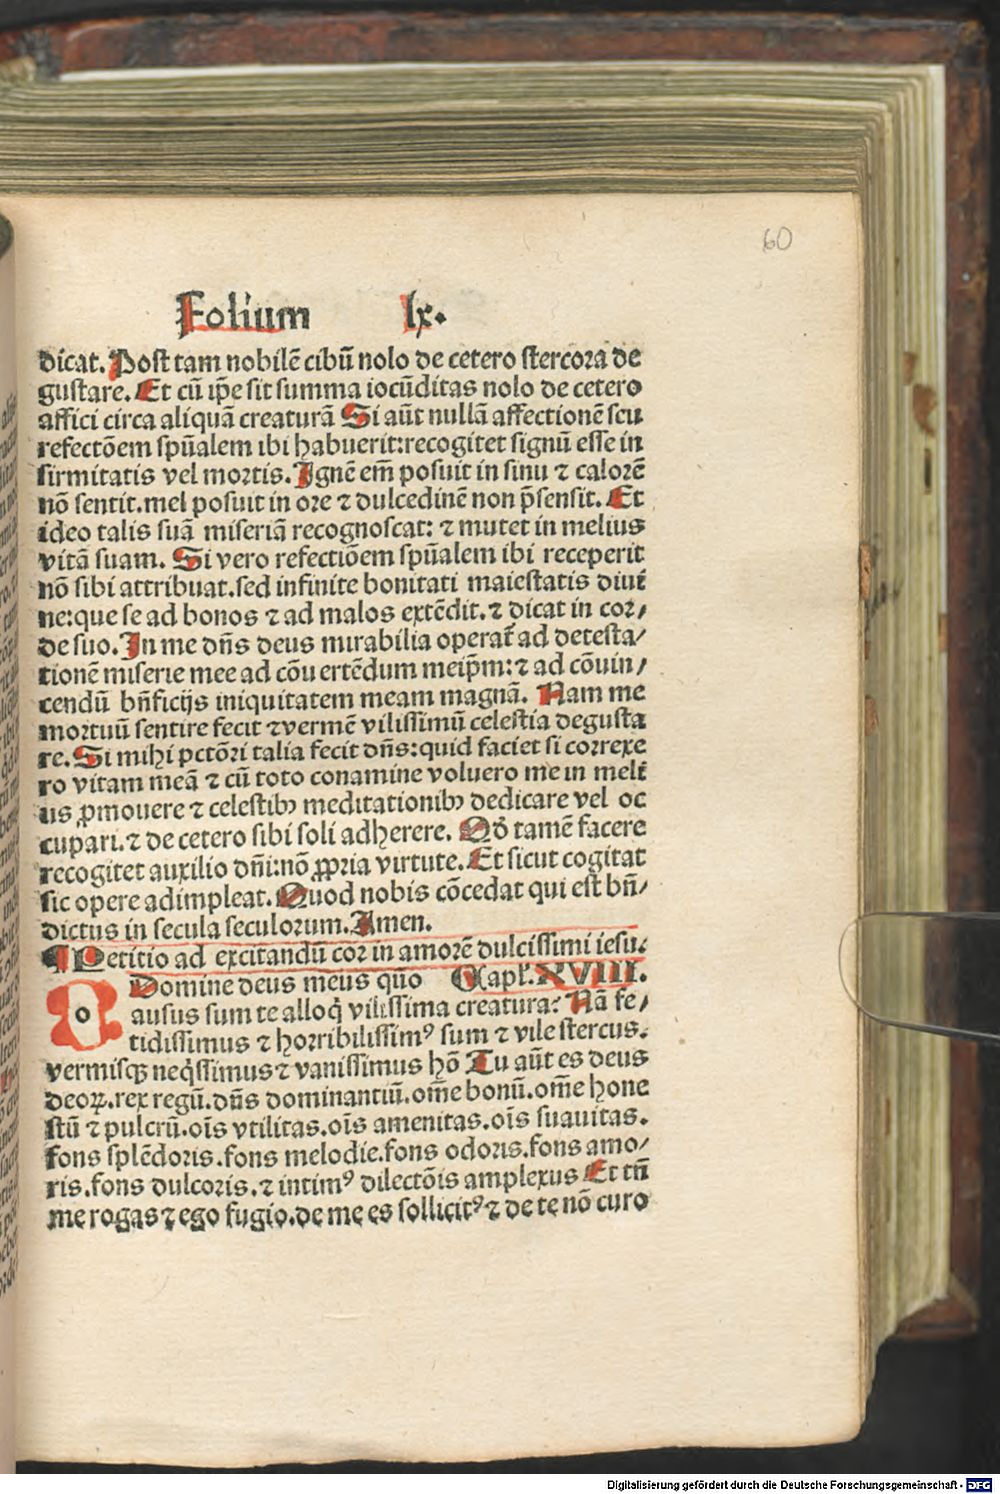 60
Folium lx.
dicat. Post tam nobilē cibū nolo de cetero stercora de
gustare. Et cū ip̄e sit summa iocūditas nolo de cetero
affici circa aliquā creaturā Si aūt nullā affectionē seu
refectōem spūalem ibi habuerit:recogitet signū esse in
firmitatis vel mortis. Ignē em̄ posuit in sinu ⁊ calorē
nō sentit.mel posuit in ore ⁊ dulcedinē non p̄sensit. Et
ideo talis suā miseriā recognoscat: ⁊ mutet in melius
vitā suam. Si vero refectiōem spūalem ibi receperit
nō sibi attribuat.sed infinite bonitati maiestatis diui
ne:que se ad bonos ⁊ ad malos extēdit. ⁊ dicat in cor/
de suo. In me dn̄s deus mirabilia operat̄ ad detesta/
tionē miserie mee ad cōu ertēdum meip̄m: ⁊ ad cōuin/
cendū bn̄ficijs iniquitatem meam magnā. Nam me
mortuū sentire fecit ⁊vermē vilissimū celestia degusta
re. Si mihi pctōri talia fecit dn̄s:quid faciet si correxe
ro vitam meā ⁊ cū toto conamine voluero me in meli
us ꝓmouere ⁊ celestibꝫ meditationibꝫ dedicare vel oc
cupari. ⁊ de cetero sibi soli adherere. Qd̄ tamē facere
recogitet auxilio dn̄i:nō ꝓpria virtute. Et sicut cogitat
sic opere adimpleat. Quod nobis cōcedat qui est bn̄/
dictus in secula seculorum. Amen.
¶ Petitio ad excitandū cor in amorē dulcissimi iesu.
o Domine deus meus quō Capl̄. XVIII.
ausus sum te alloq̄ vilissima creatura? Nā fe/
tidissimus ⁊ horribilissimꝰ sum ⁊ vile stercus.
vermisqꝫ neq̄ssimus ⁊ vanissimus hō Tu aūt es deus
deoꝝ.rex regū.dn̄s dominantiū.om̄e bonū.om̄e hone
stū ⁊ pulcrū.oīs vtilitas.oīs amenitas.oīs suauitas.
fons splēdoris.fons melodie.fons odoris.fons amo/
ris.fons dulcoris. ⁊ intimꝰ dilectōis amplexus Et tn̄
me rogas ⁊ ego fugio.de me es sollicitꝰ ⁊ de te nō curo
Digitalisierung gefördert durch die Deutsche Forschungsgemeinschaft - DFG